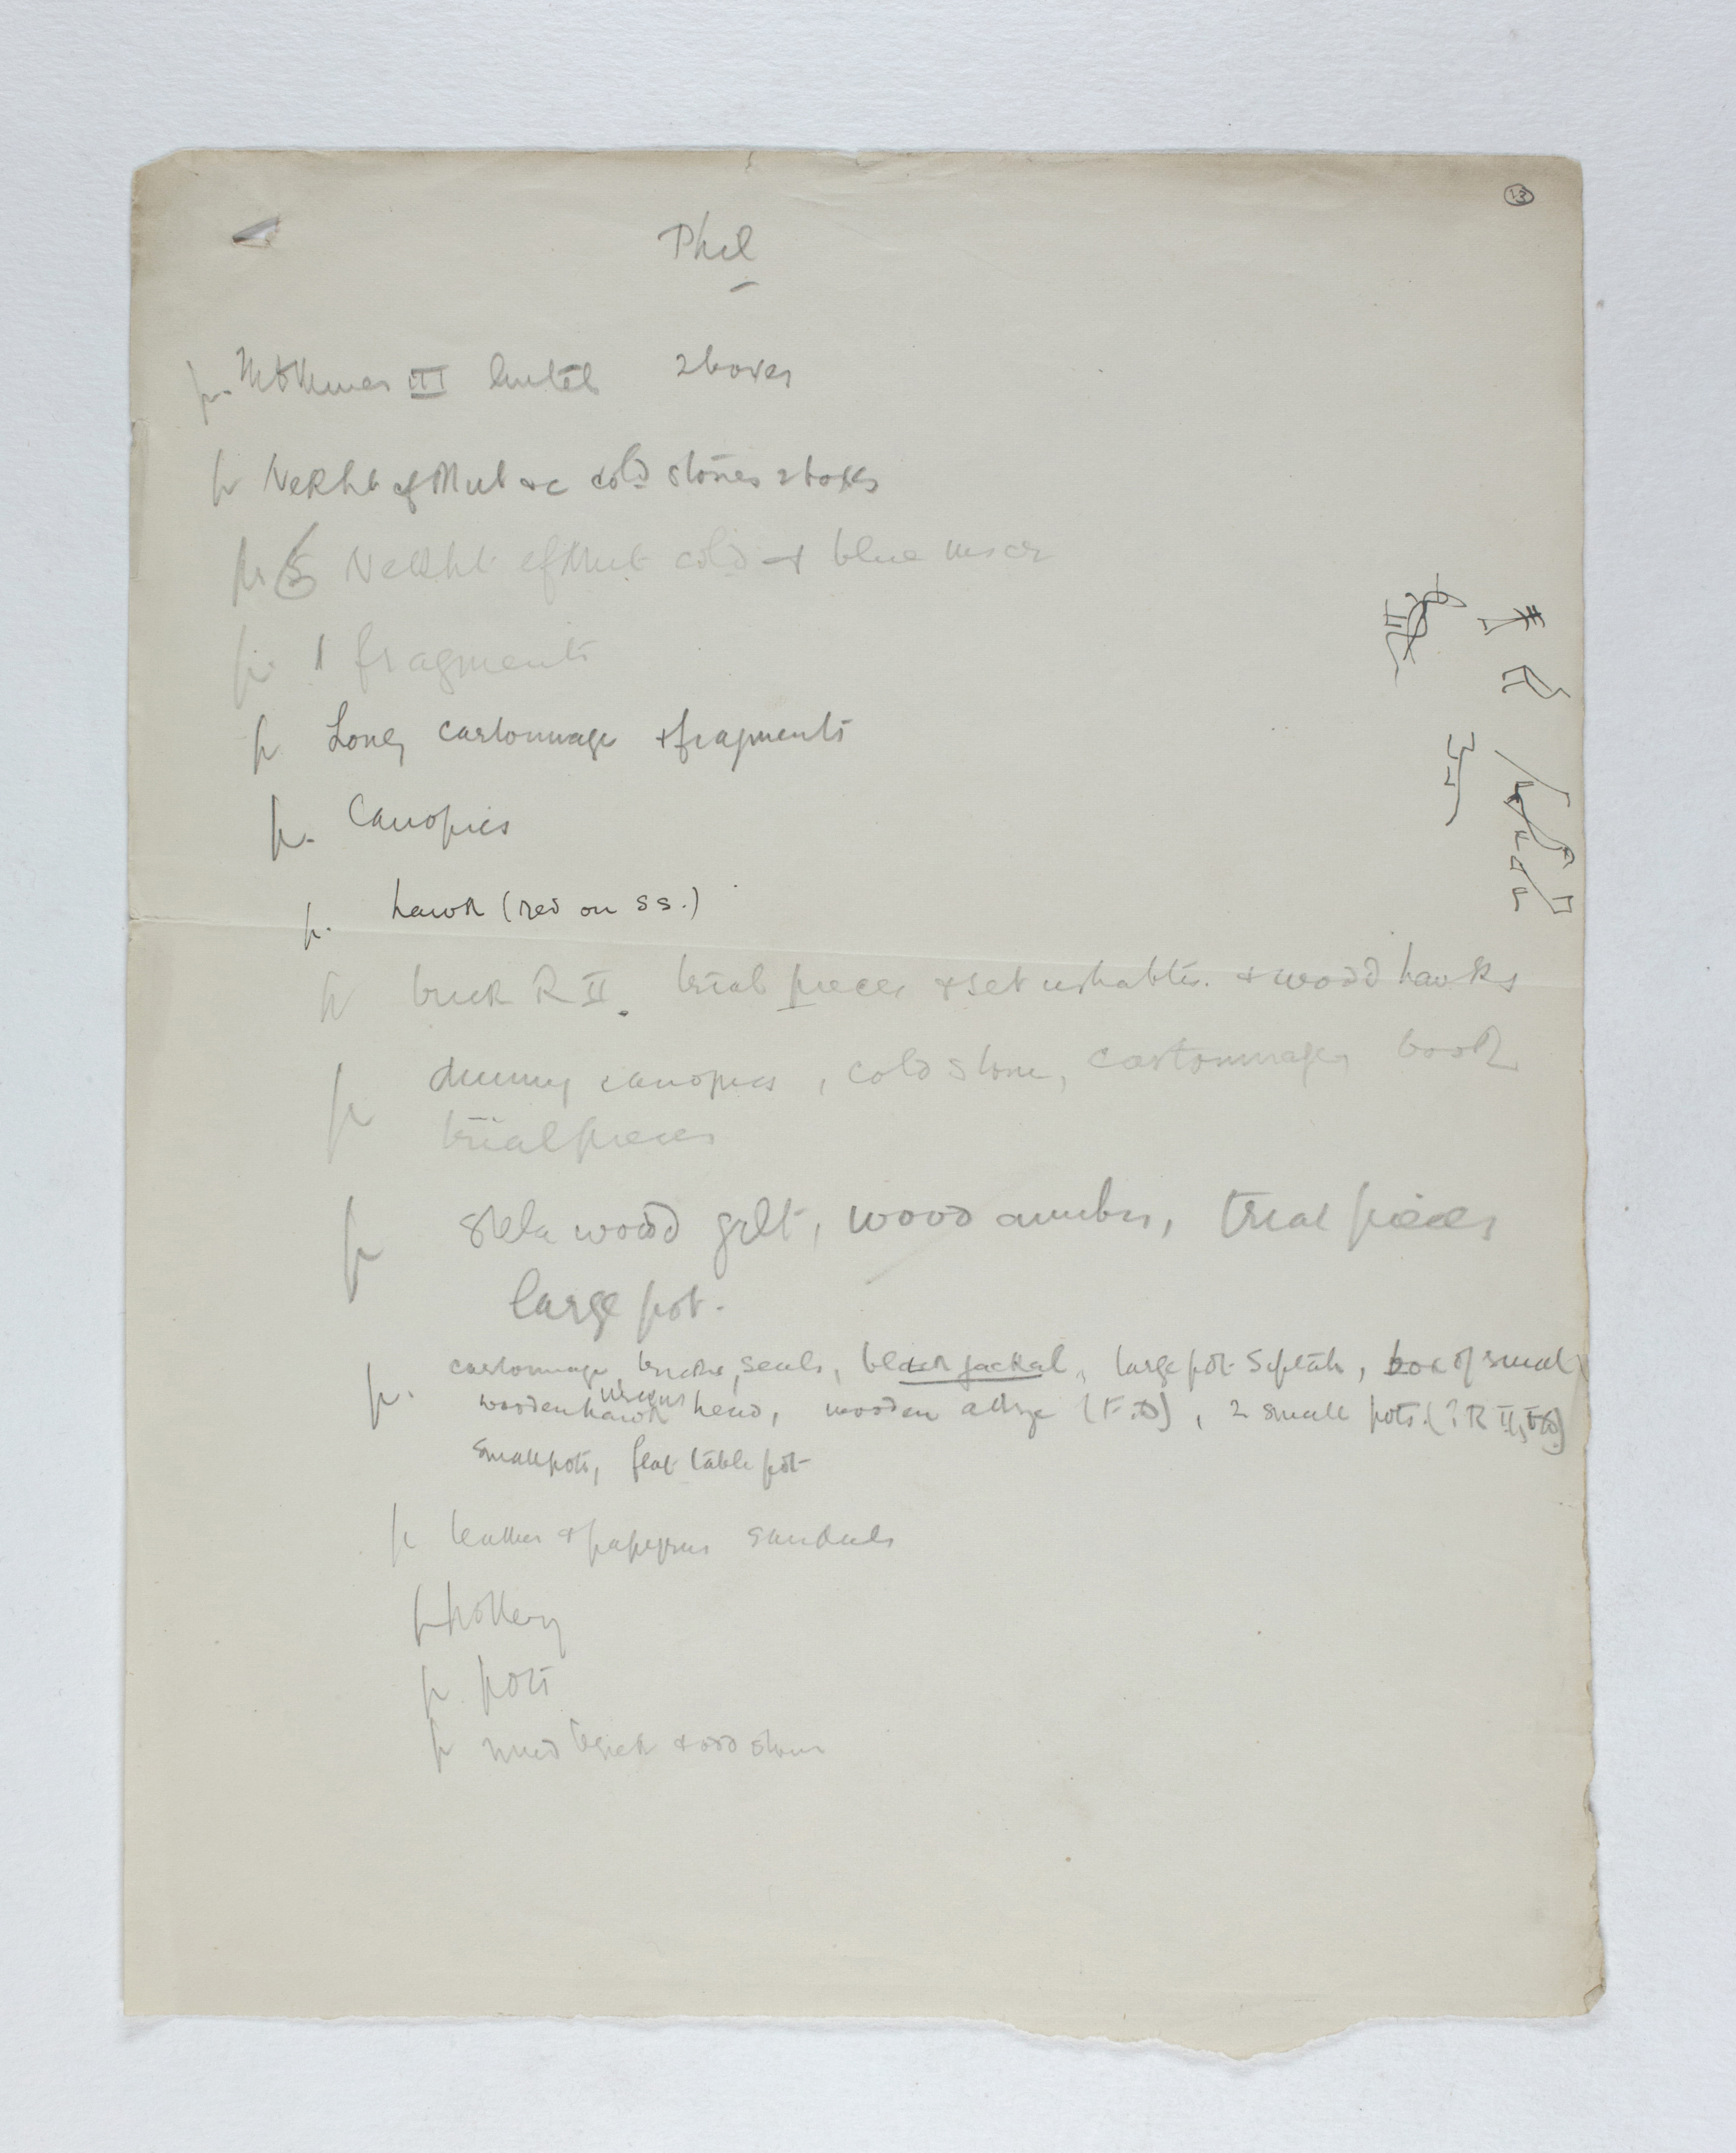 13
Phil
p. Tothmes III lintel 2 boxes
p Nekht ef Mut &c cold stones 2 boxes
p Nekht ef Mut cold & blue
p. 1 fragments
p. Long cartonnage & fragments
p. Canopics
p. hawk (red on ss.)
p brick R II. trial pieces & set ushabtis. & wood hawks
p dummy canopics, cold stone, cartonnages book
trial pieces
p stela wood gilt, wood, trial pieces
large pot.
p. cartonnage, bricks, seals, black jackal, large pot Siptah, box of small
wooden hawk head, wooden (F.D), 2 small pots. (? R II,
small pots, flat table pot
p leather & papyrus sandals
p pottery
p. pots
p mud brick & odd stones